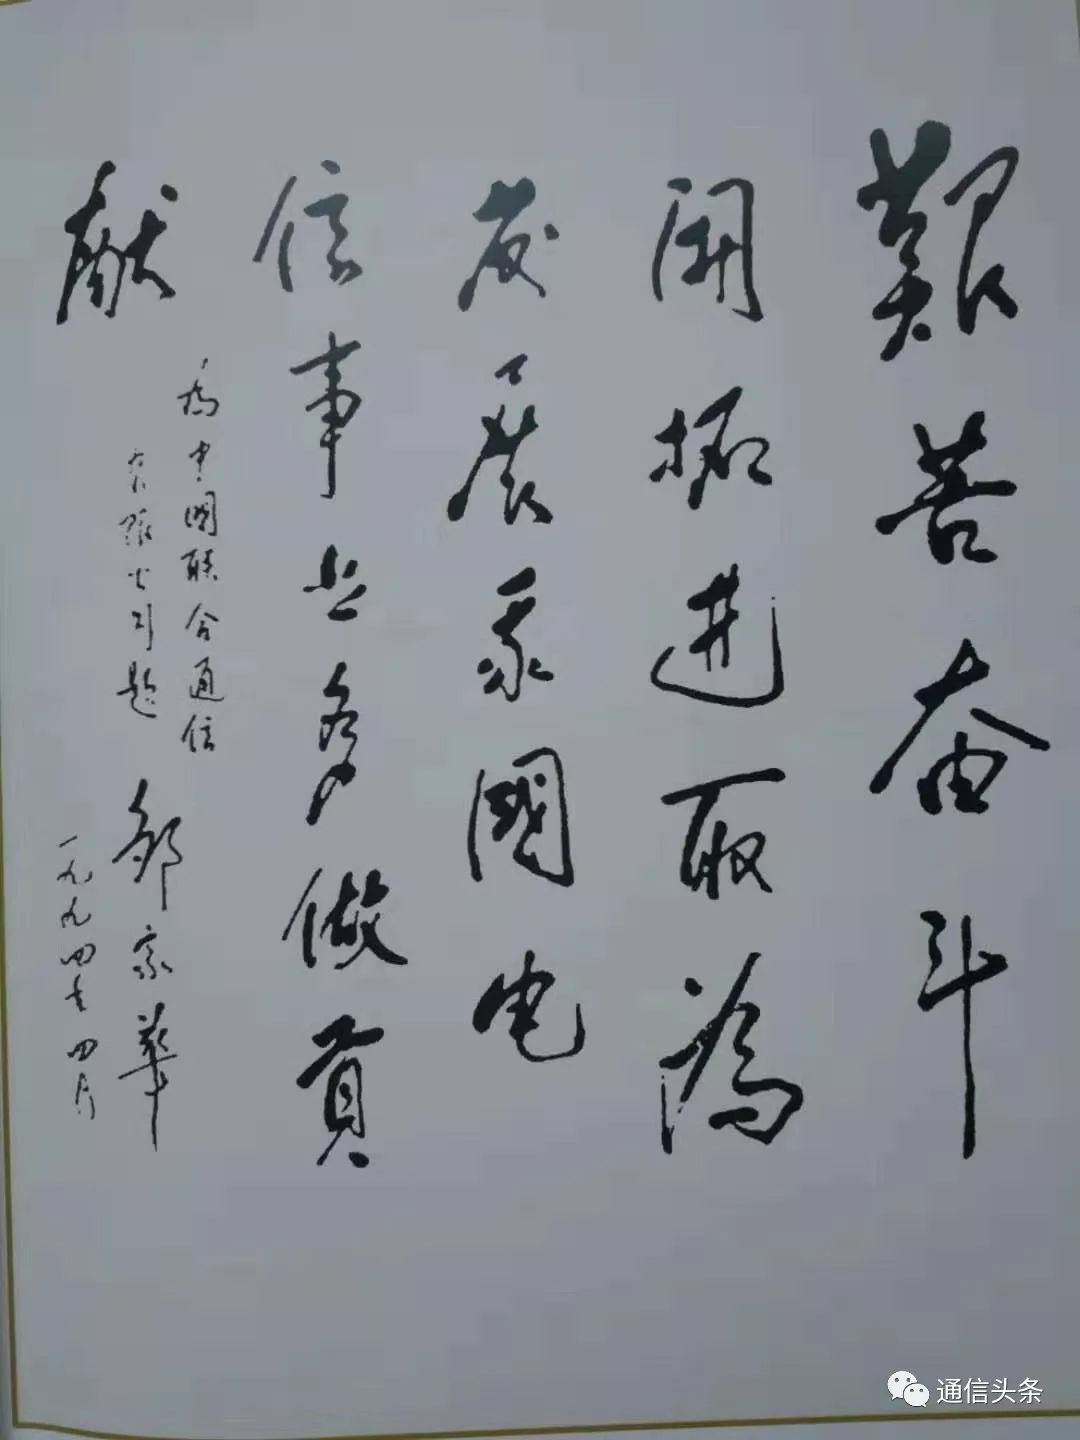 艱苦奋斗
開拓进取為
发展我國电
信事业多做貢
献
為中國联合通信
有限公司题
邹家華
一九九四年四月
通信头条